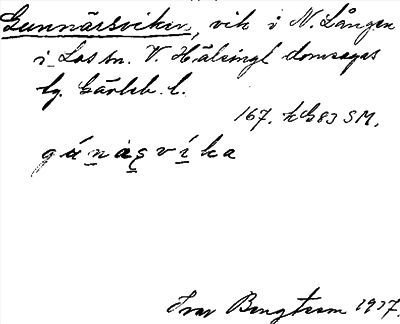 Gunnarsviken, vik i N. Lången
i Los sn. V. Hälsingl domsagas
tg. Gävleb. l.
167. hG 83 SM.
gúnạsvíka
Ivar Bengtsson 1937.